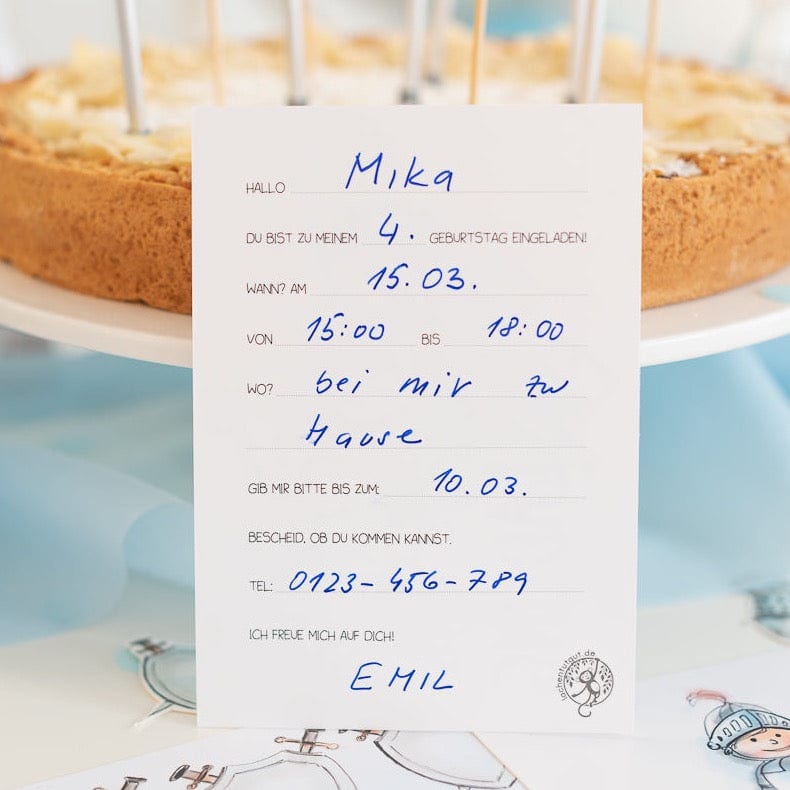 HALLO Mika
DU BIST ZU MEINEM 4. GEBURTSTAG EINGELADEN!
WANN? AM 15.03.
VON 15:00 BIS 18:00
WO? bei mir zu
Hause
GIB MIR BITTE BIS ZUM: 10.03.
BESCHEID, OB DU KOMMEN KANNST.
TEL: 0123-456-789
ICH FREUE MICH AUF DICH!
EMIL
lachentutgut.de